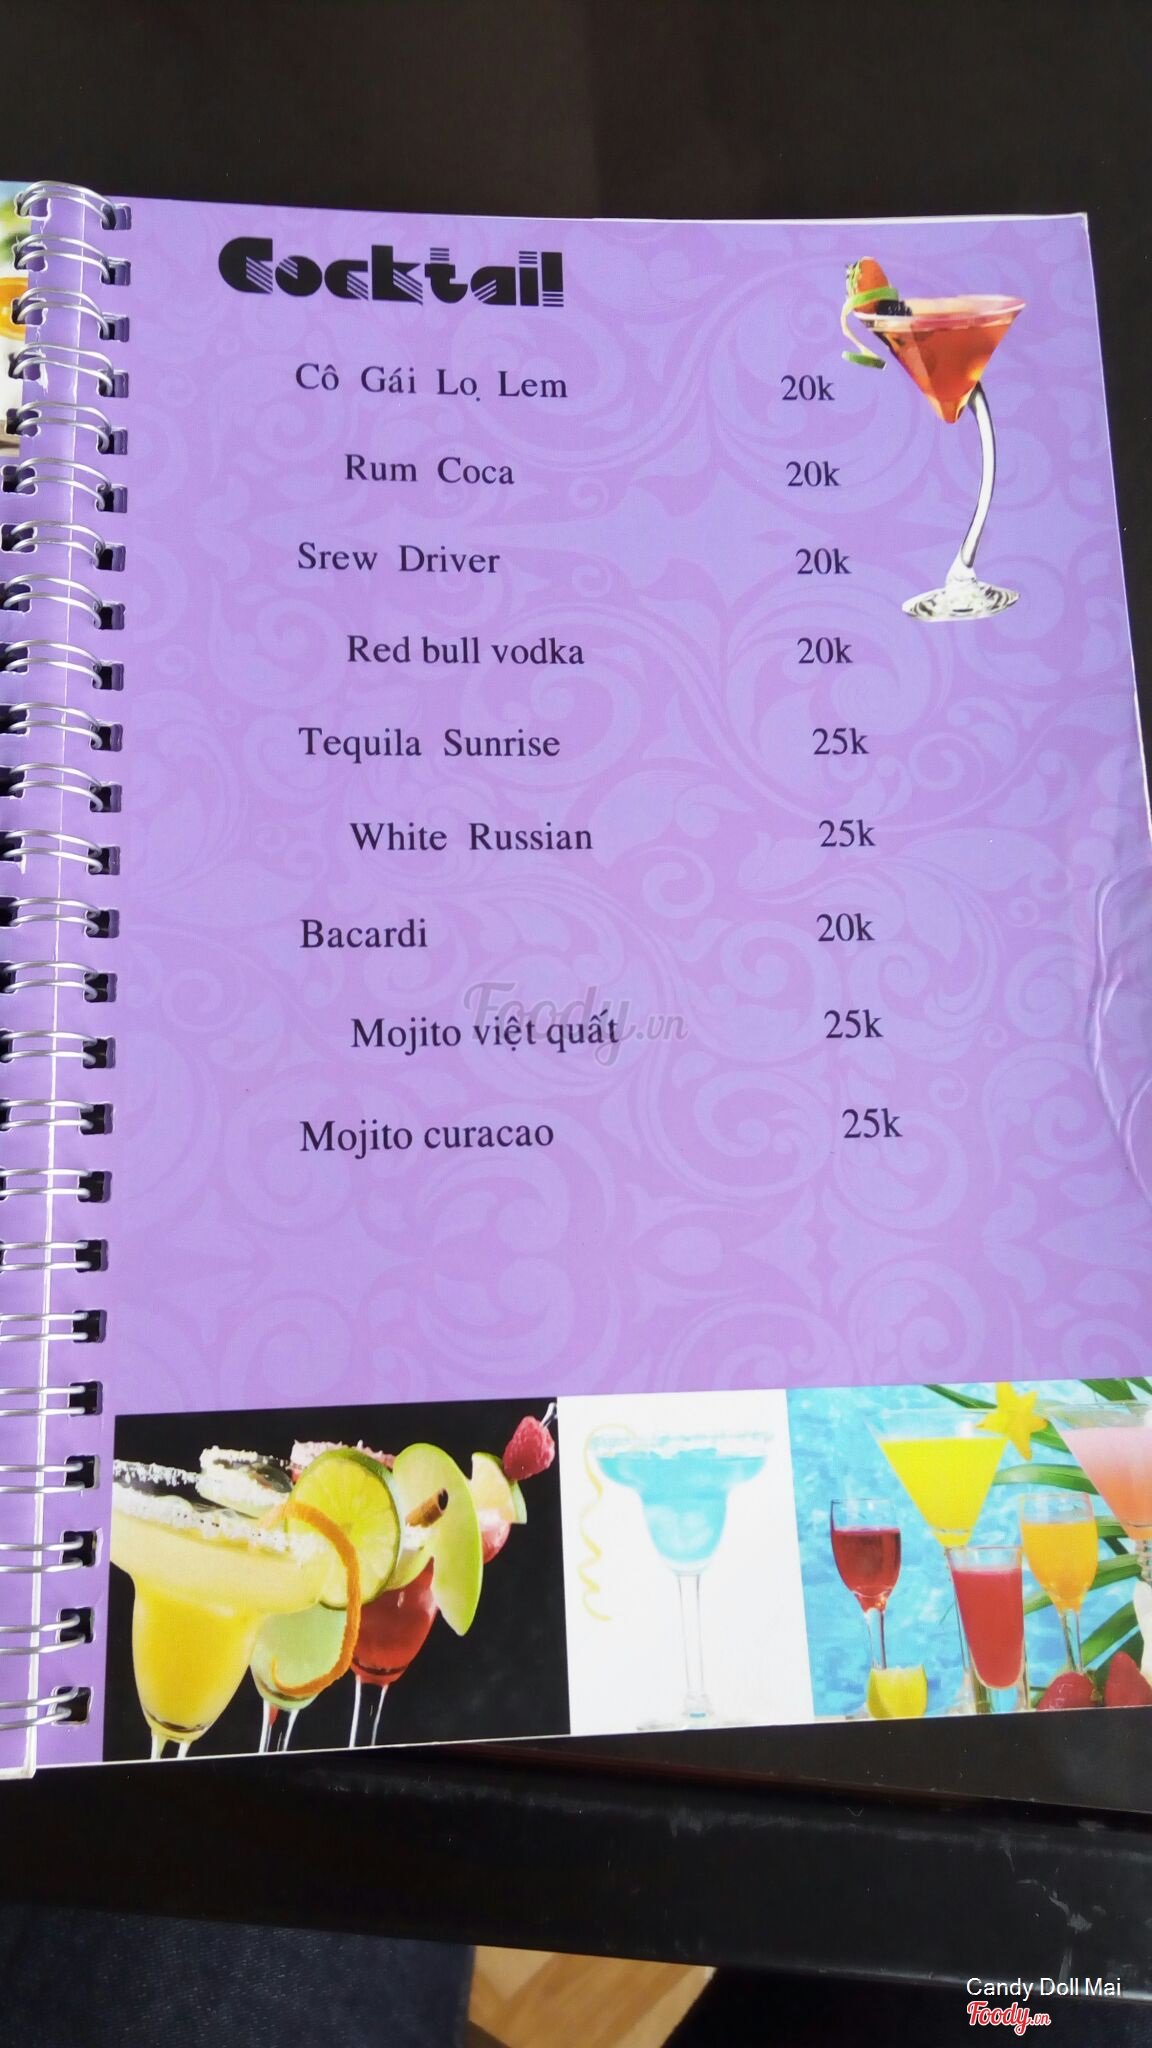 Cocktail
Cô Gái Lọ Lem 20k
Rum Coca 20k
Srew Driver 20k
Red bull vodka 20k
Tequila Sunrise 25k
White Russian 25k
Bacardi 20k
Foody.vn
Mojito việt quất 25k
Mojito curacao 25k
Candy Doll Mai
Foody.vn